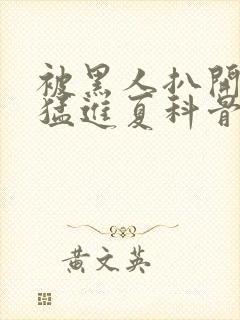 被黑人扒開
猛進夏科醫
黃文英